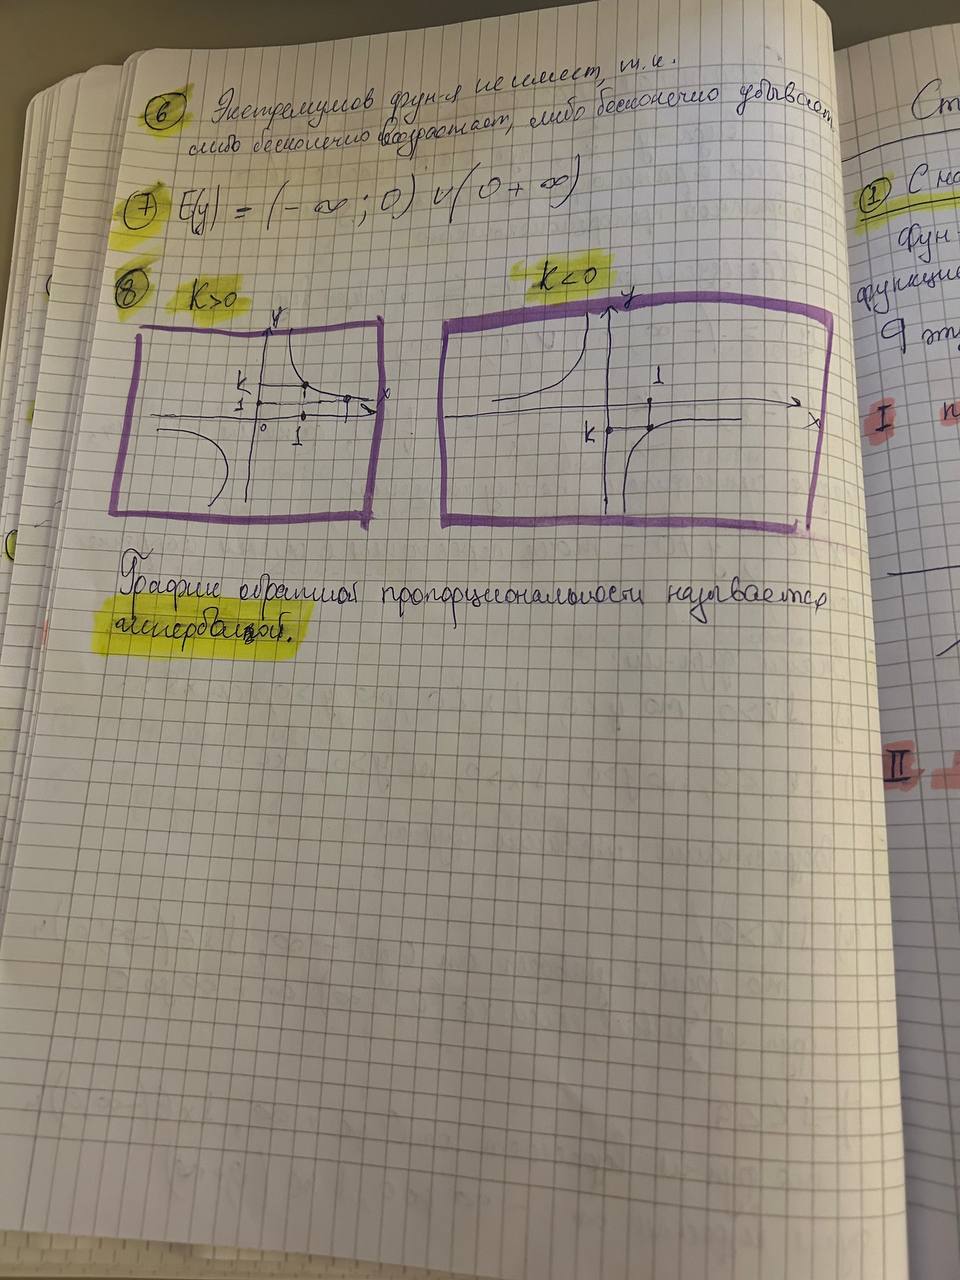 6 Экстремумов фун-я не имеет, т.к.
либо бесконечно возрастает, либо бесконечно убывает
7 E(y) = (- ∞ ; 0) ∪ (0 + ∞)
8 K>0 K<0
y
K
1
0
1
x
y
1
K
x
График обратной пропорциональности называется
гиперболой.
Ст
1 С
фун-
функцие
9 эт
I
II